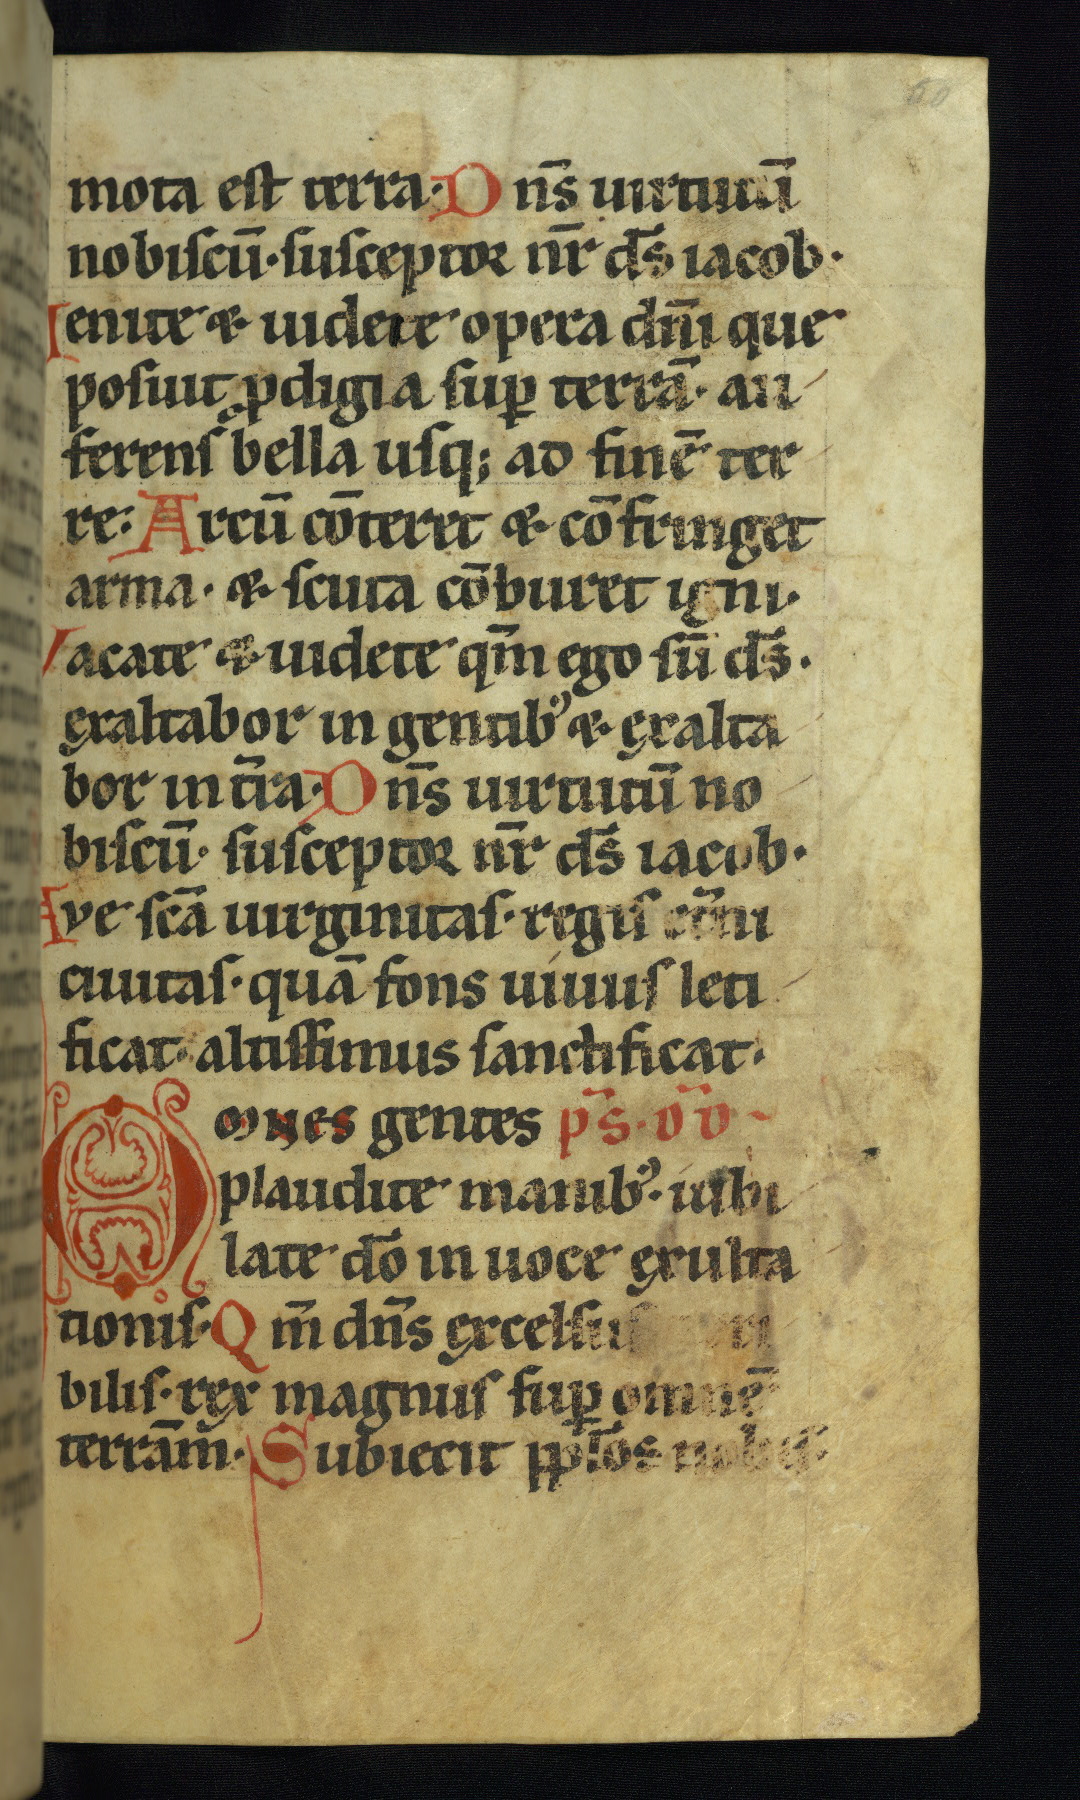 60
mota est terra· Dn̄s uirtutū
nobiscū· susceptor nr̄ ds̄ iacob·
Venite & uidete opera dn̄i que
posuit ꝓdigia suꝑ terrā· au
ferens bella usq; ad finē ter
re: Arcū cōteret & cōfringet
arma· & scuta cōburet igni·
Vacate & uidete qm̄ ego sū ds̄·
exaltabor in gentibꝰ & exalta
bor in tr̄a· Dn̄s uirtutū no
biscū· susceptor nr̄ ds̄ iacob·
Ave scā uirginitas· regis et̄ni
ciuitas· quā fons uiuus leti
ficat· altissimus sanctificat·
Omnes gentes ps̄· dd̄
plaudite manibꝰ· iubi
late dō in uoce exulta
tionis· Qm̄ dn̄s excelsus
bilis· rex magnus suꝑ omnē
terrām· Subiecit pp̄los nobis·